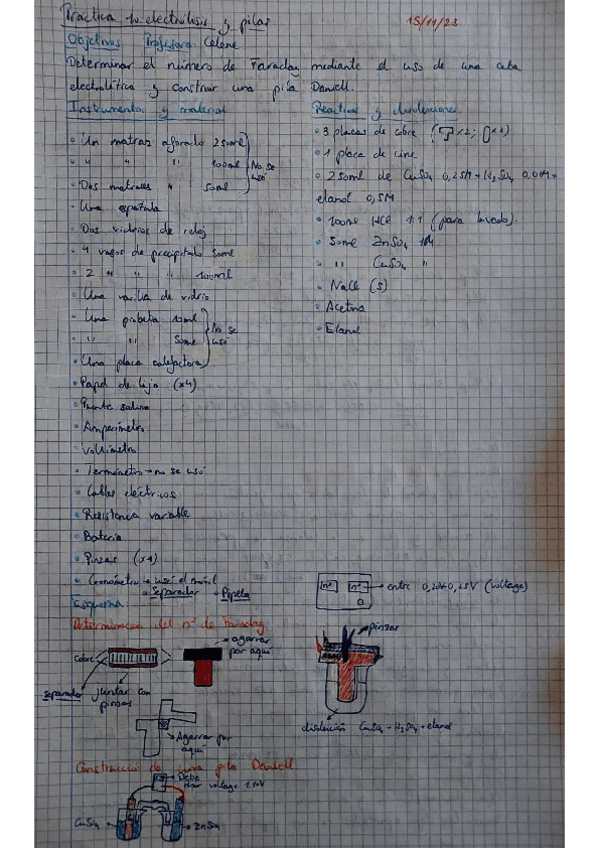 Práctica 10: electrólisis y pilas 15/11/23
Objetivos Profesora Celene
Determinar el número de Faraday mediante el uso de una cuba
electrolítica y construir una pila Daniell.
Instrumental y material
• Un matraz aforado 250ml
• " " " 100ml
• Dos matraces " 50ml
No se usó
• Una espátula
• Dos vidrios de reloj
• 4 vasos de precipitado 50ml
• 2 " " " 100ml
• Una varilla de vidrio
• Una probeta 10ml
• " " 50ml
• Una placa calefactora
No se usó
• Papel de lija (x4)
• Puente salino
• Amperímetro
• Voltímetro
• Termómetro → no se usó
• Cables eléctricos
• Resistencia variable
• Batería
• Pinzas (x4)
• Cronómetro → usé el móvil
• Separador • Pipeta
Reactivos y disoluciones
• 3 placas de cobre ( x2; x1)
• 1 placa de cinc
• 250ml de CuSO4 0,25M + H2SO4 0,01M +
etanol 0,5M
• 100ml HCl 1:1 (para lavado).
• 50ml ZnSO4 1M
• " CuSO4 "
• NaCl (s)
• Acetona
• Etanol
nº nº → entre 0,20 0,25V (voltage)
Esquema:
Determinación del nº de Faraday
cobre
separador
juntar con
pinzas
agarrar
por aquí
Agarrar por
aquí
pinzas
disolución CuSO4 + H2SO4 + etanol
Construcción de una pila Daniell
Debe
dar voltage 1,10V
CuSO4
ZnSO4